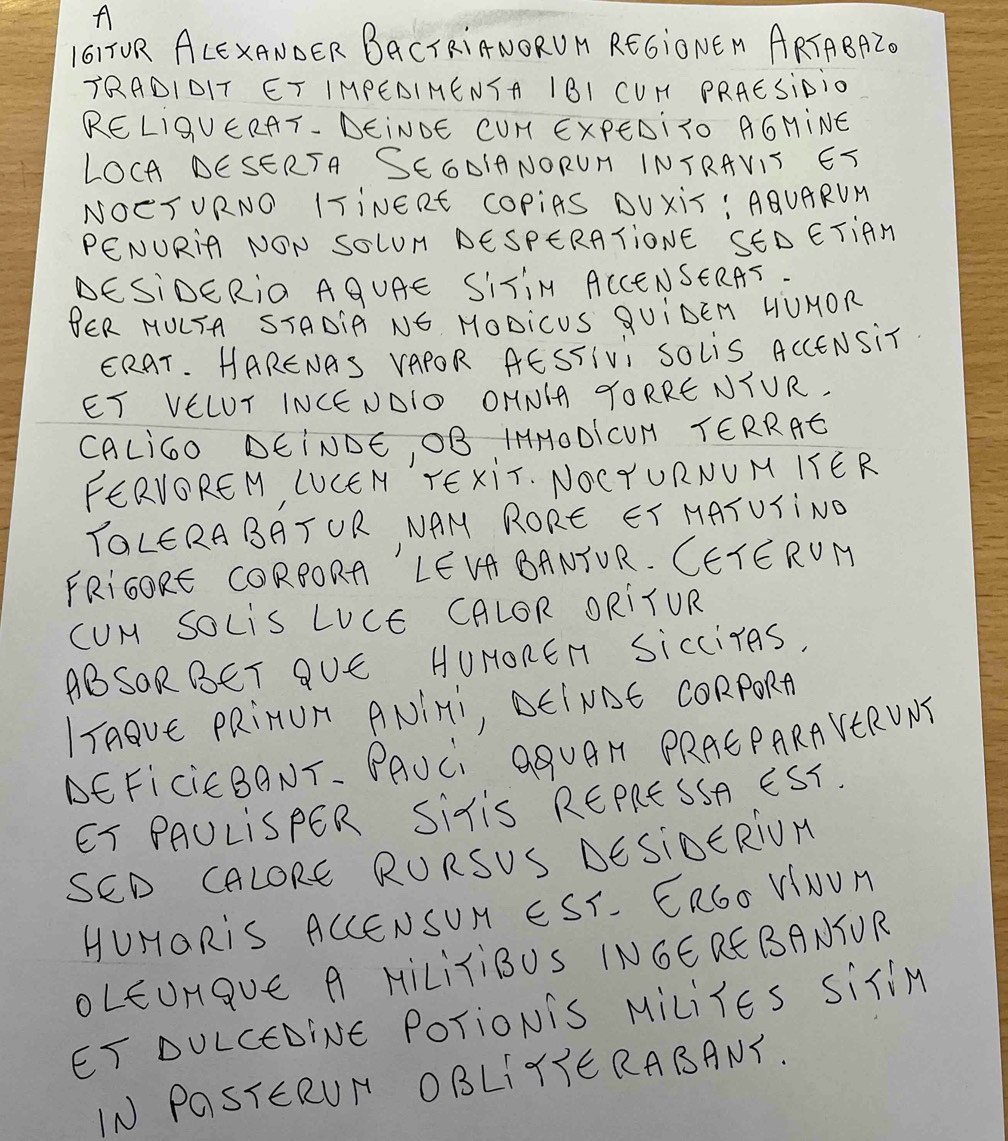 A
IGITUR ALEXANDER BACTRIANORUM REGIONEM ARTABAZO
TRADIDIT ET IMPEDIMENTA IBI CUM PRAESIDIO
RELIQUERAT. DEINDE CUM EXPEDITO AGMINE
LOCA DESERTA SEGDIANORUM INTRAVIT ET
NOCTURNO ITINERE COPIAS DUXIT; AQUARUM
PENURIA NON SOLUM DESPERATIONE SED ETIAM
DESIDERIO AQUAE SITIM ACCENSERAT.
PER MULTA STADIA NE MODICUS QUIDEM HUMOR
ERAT. HARENAS VAPOR AESTIVI SOLIS ACCENSIT
ET VELUT INCENDIO OMNIA TORRENTUR.
CALIGO DEINDE, OB IMMODICUM TERRAE
FERVOREM, LUCEM TEXIT. NOCTURNUM ITER
TOLERABATUR, NAM RORE ET MATUTINO
FRIGORE CORPORA LEVABANTUR. CETERUM
CUM SOLIS LUCE CALOR ORITUR
ABSORBET QUE HUMOREM SICCITAS.
ITAQUE PRIMUM ANIMI, DEINDE CORPORA
DEFICIEBANT. PAUCI AQUAM PRAEPARAVERUNT
ET PAULISPER SITIS REPRESSA EST.
SED CALORE RURSUS DESIDERIUM
HUMORIS ACCENSUM EST. ERGO VINUM
OLEUMQUE A MILITIBUS INGEREBANTUR
ET DULCEDINE POTIONIS MILITES SITIM
IN POSTERUM OBLITTERABANT.